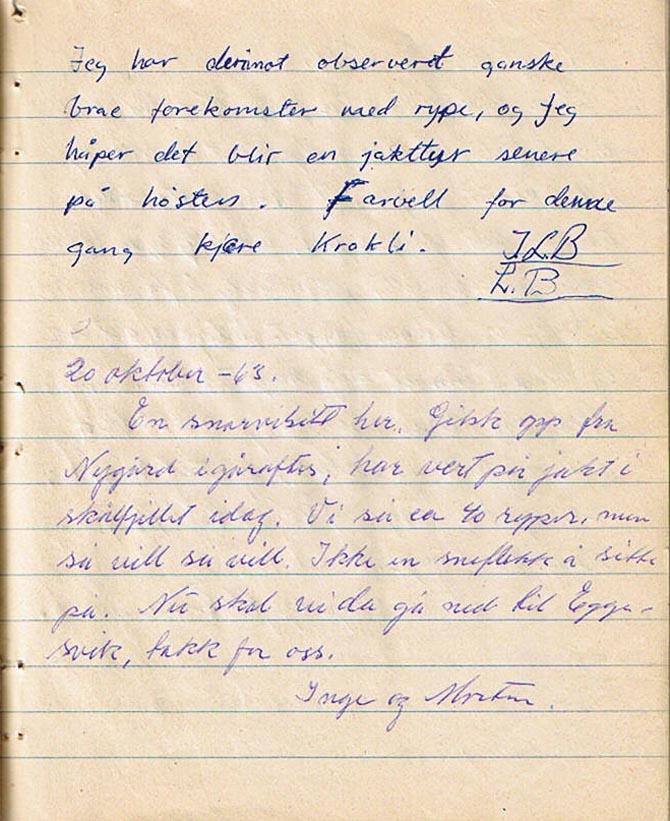 Jeg har derimot observert ganske
brae forekomster med rype, og jeg
håper det blir en jakttur senere
på høsten. Farvell for denne
gang kjære Krokli. J.L.B
L.B
20 oktober -63.
En snarvisitt her. Gikk opp fra
Nygård igåraftes, har vert på jakt i
skålfjellet idag. Vi så ca 40 ryper, men
så vill så vill. Ikke en sneflekk å sitte
på. Nå skal vi da gå ned til Egga-
svik, takk for oss.
Inge og Morten.